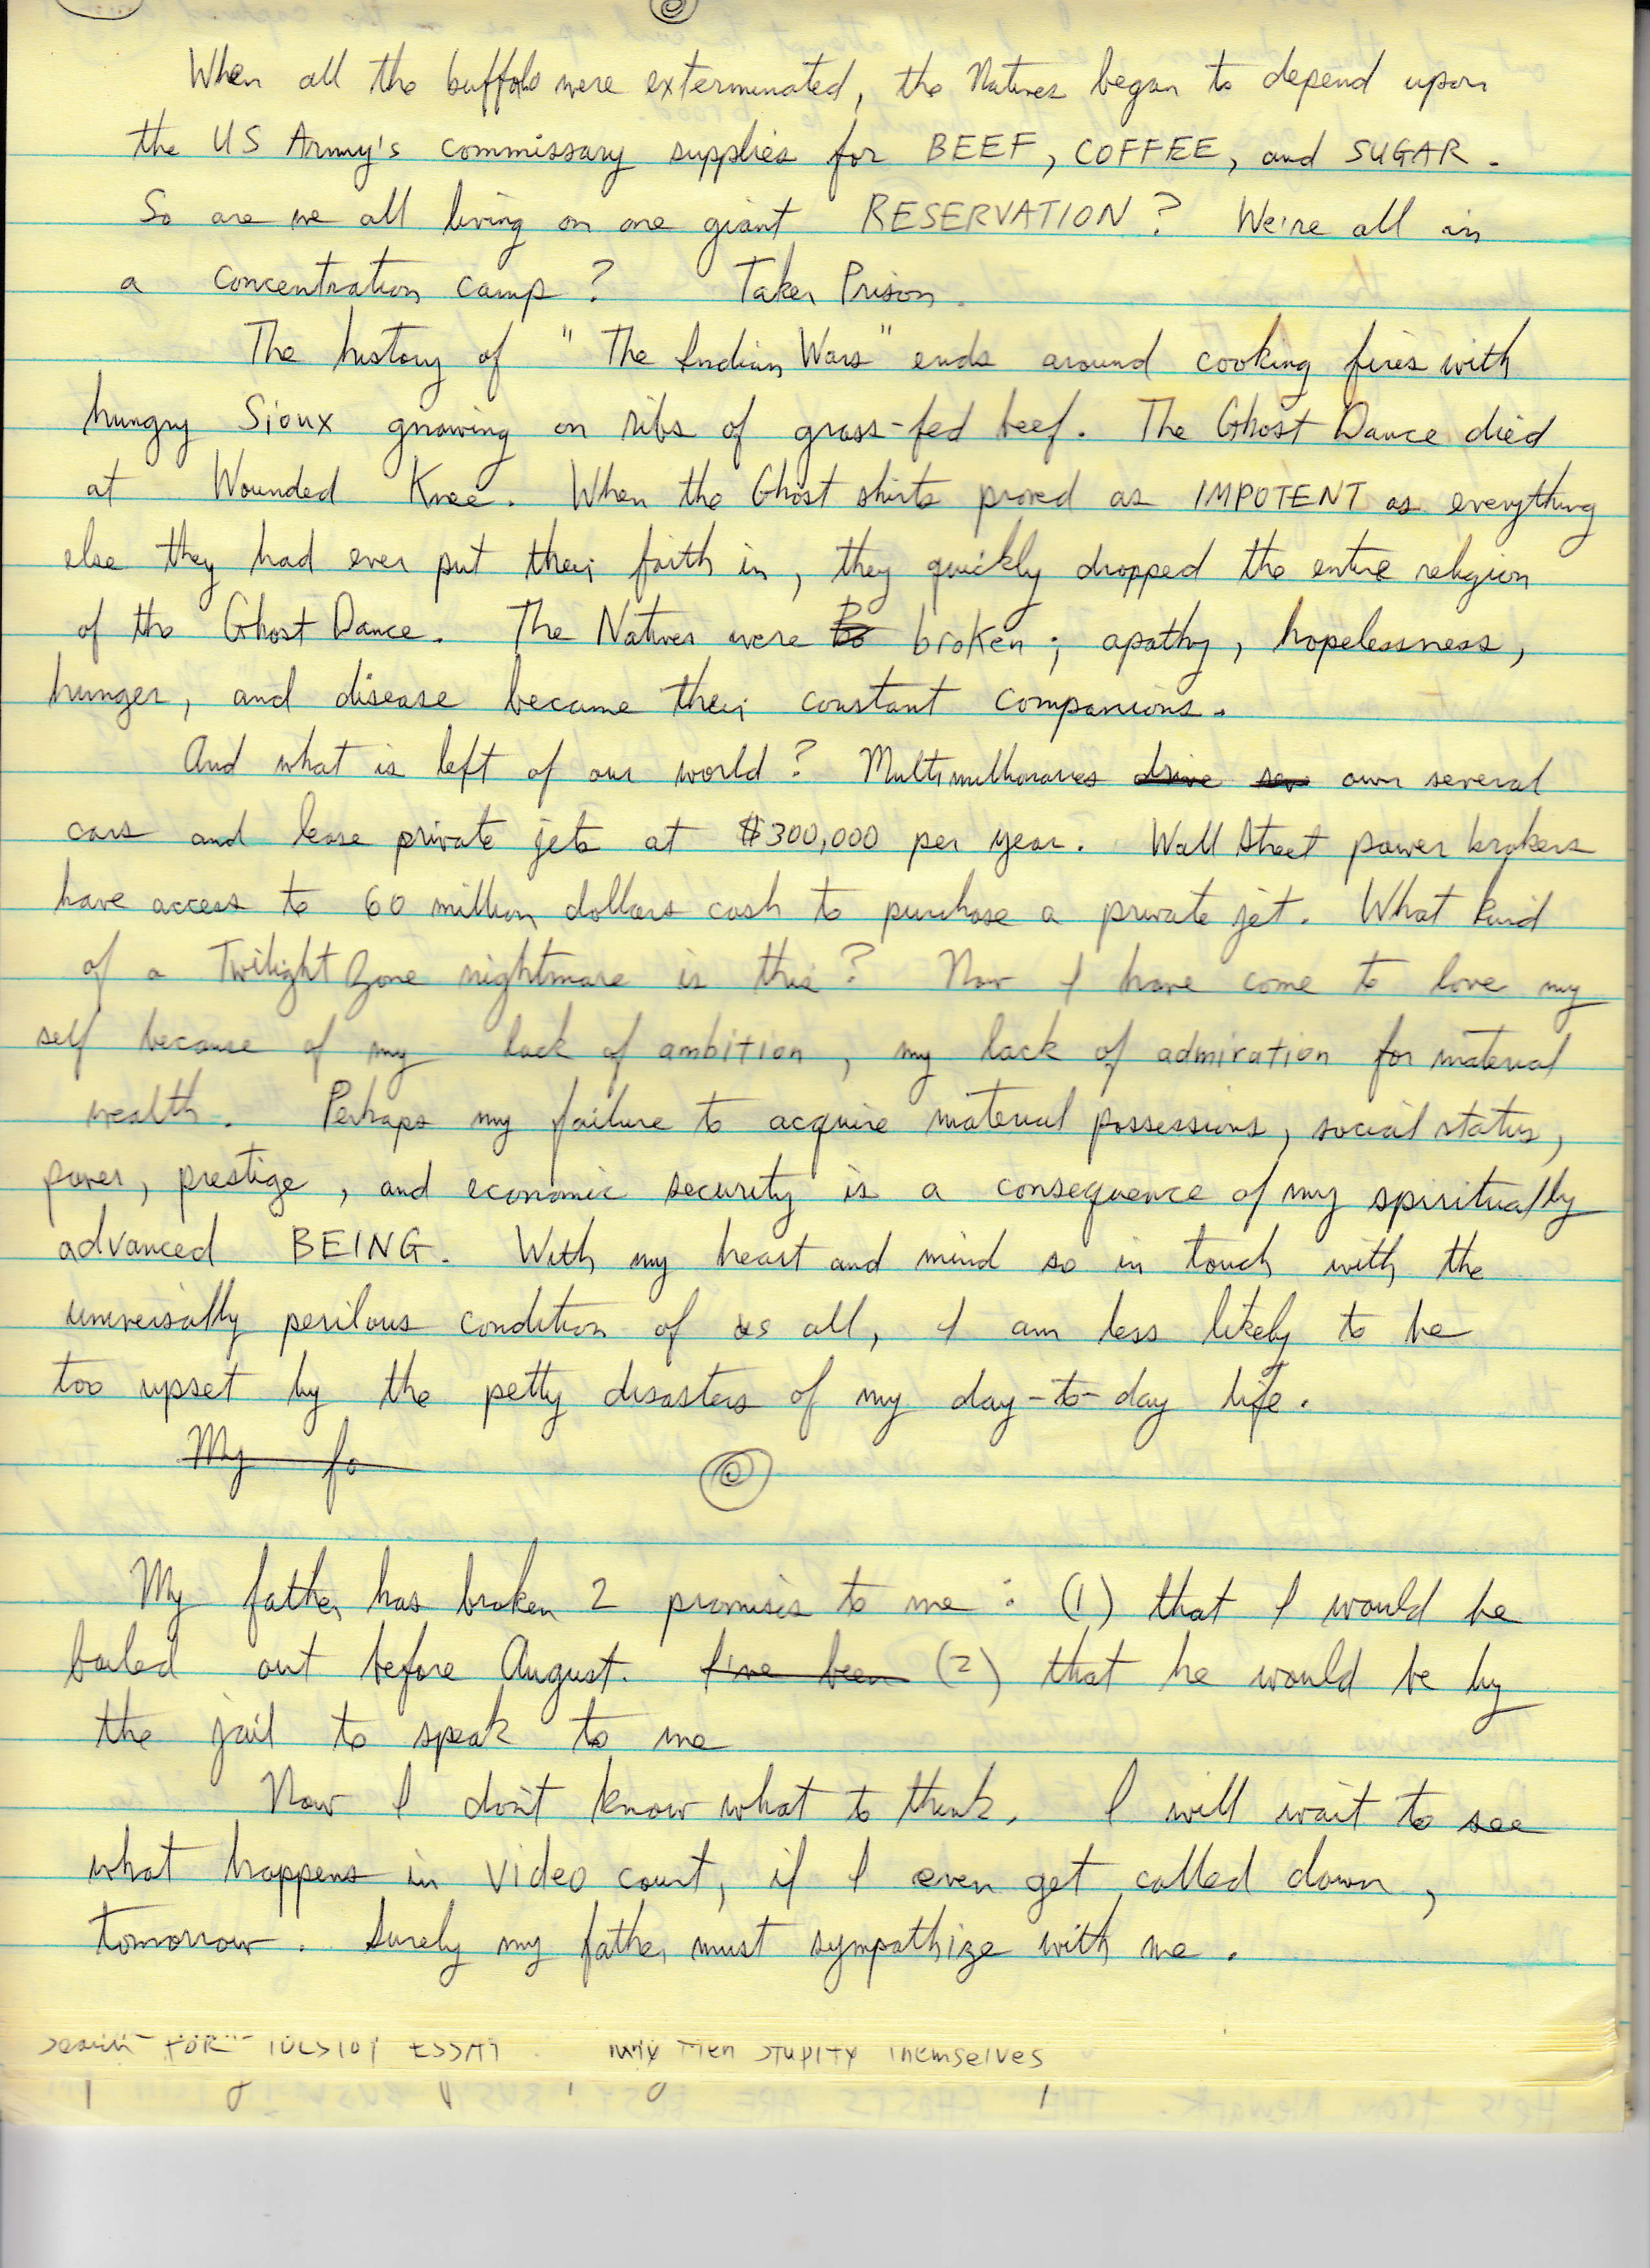 When all the buffalo were exterminated, the Natives began to depend upon
the US Army's commissary supplies for BEEF, COFFEE, and SUGAR.
So are we all living on one giant RESERVATION? We're all in
a concentration camp? Taker Prison.
The history of "The Indian Wars" ends around cooking fires with
hungry Sioux gnawing on ribs of grass-fed beef. The Ghost Dance died
at Wounded Knee. When the Ghost shirts proved as IMPOTENT as everything
else they had ever put their faith in, they quickly dropped the entire religion
of the Ghost Dance. The Natives were Bo broken; apathy, hopelessness,
hunger, and disease became their constant companions.
And what is left of our world? Multimillionaires drive sev own several
cars and lease private jets at $300,000 per year. Wall Street power brokers
have access to 60 million dollars cash to purchase a private jet. What kind
of a Twilight Zone nightmare is this? Now I have come to love my
self because of my lack of ambition, my lack of admiration for material
wealth. Perhaps my failure to acquire material possessions, social status,
power, prestige, and economic security is a consequence of my spiritually
advanced BEING. With my heart and mind so in touch with the
universally perilous condition of us all, I am less likely to be
too upset by the petty disasters of my day-to-day life.
My fa
My father has broken 2 promises to me: (1) that I would be
bailed out before August. I've been (2) that he would be by
the jail to speak to me
Now I don't know what to think. I will wait to see
what happens in video court, if I even get called down,
tomorrow. Surely my father must sympathize with me.
Search FOR ESSAY Men Stupify Themselves